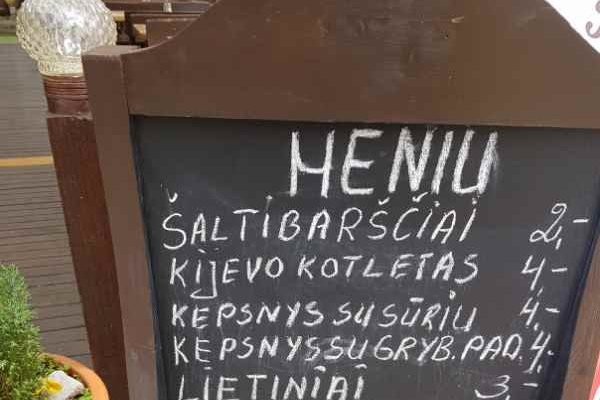 MENIU
ŠALTIBARŠČIAI 2,-
KIJEVO KOTLETAS 4,-
KEPSNYS SU SŪRIU 4,-
KEPSNYS SU GRYB. PAD. 4,-
LIETINIAI 3,-